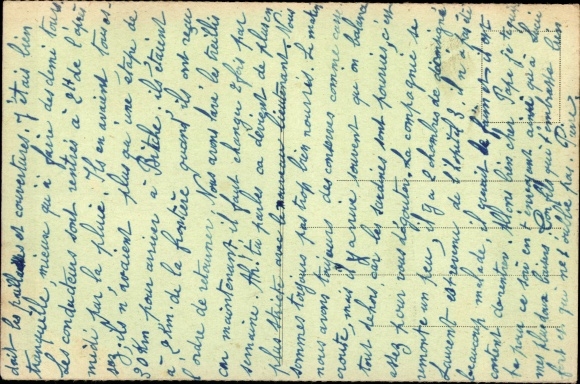 doit les paillasses et couvertures. J'étais bien
tranquille, mieux qu'à faire des demi tours.
Les conducteurs sont rentrés à 2H de l'après
midi par la pluie. Ils en avaient tous as-
sez, ils n'avaient plus qu'une étape de
38 Km pour arriver à Bitche; ils étaient
à 2 Km. de la frontière quand ils ont reçu
l'ordre de retourner. Nous avons les treillis
car maintenant il faut changer 2 fois par
semaine. Ah! tu parles ca devient de plus en
plus stricte avec le nouveau lieutenant. Nous
sommes toujours pas trop bien nourris. Le matin
nous avons toujours des conserves comme casse-
croute, mais il arrive souvent qu'on balance
tout dehors car les sardines sont pourries, c'est
assez pour vous dégouter. La compagnie se
remonte un peu, il y a 2 chambres de
Laurent est revenu de l'hopital 3. Il a été
beaucoup malade, il est
content Allons bien cher Papa je te quitte
là pour ce soir en t'envoyant ainsi qu'à Lulu
mes plus doux baisers. Ton fils qui t'embrasse bien
fort et qui ne t'oublie pas. Pierre.